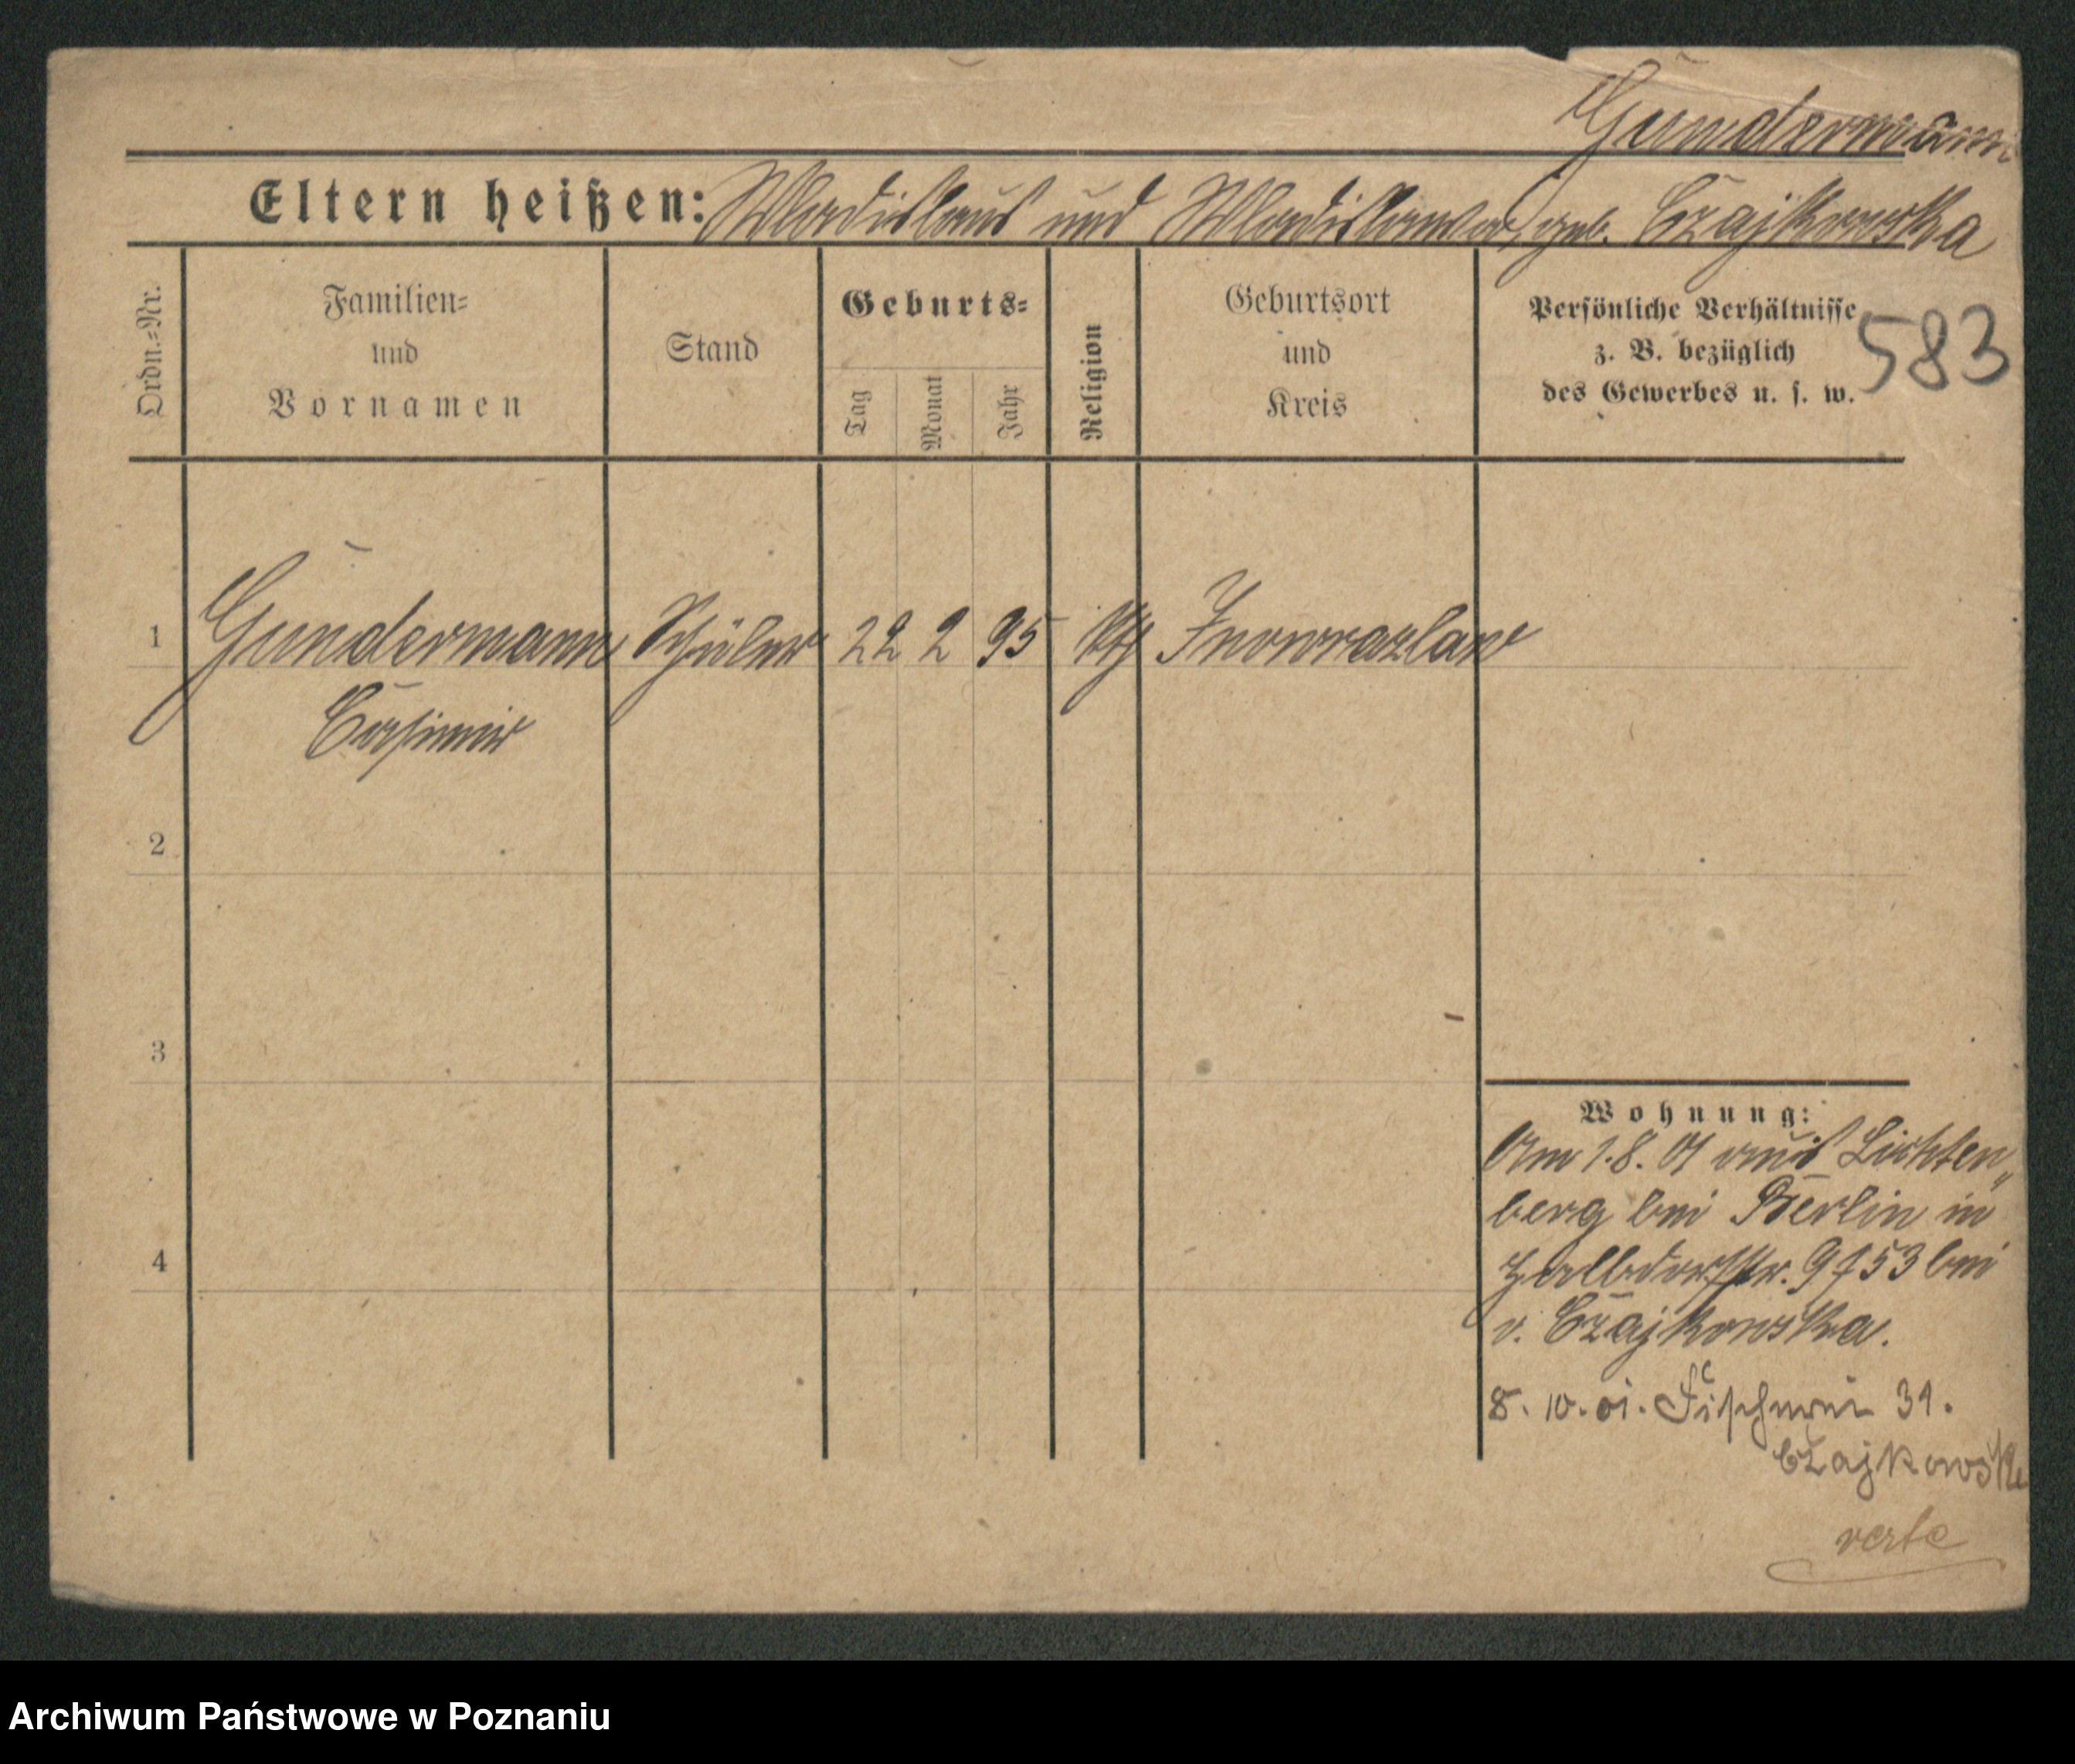 Gundermann
Eltern heißen: Wladislaus und Wladislawa, geb. Czajkowska
Ordn.-Nr.
Familien-
und
Vornamen
Stand
Geburts-
Tag
Monat
Jahr
Religion
Geburtsort
und
Kreis
Persönliche Verhältnisse
z. B. bezüglich
des Gewerbes u. s. w.
583
1 Gundermann Schüler 22 2 95 kth Inowrazlaw
Casimir
2
3
4
Wohnung:
Am 1.8.01 aus Lichten„
berg bei Berlin in
bei
v. Czajkowska.
8. 10. 01. Fischerei 31.
Czajkowska
verte
Archiwum Państwowe w Poznaniu